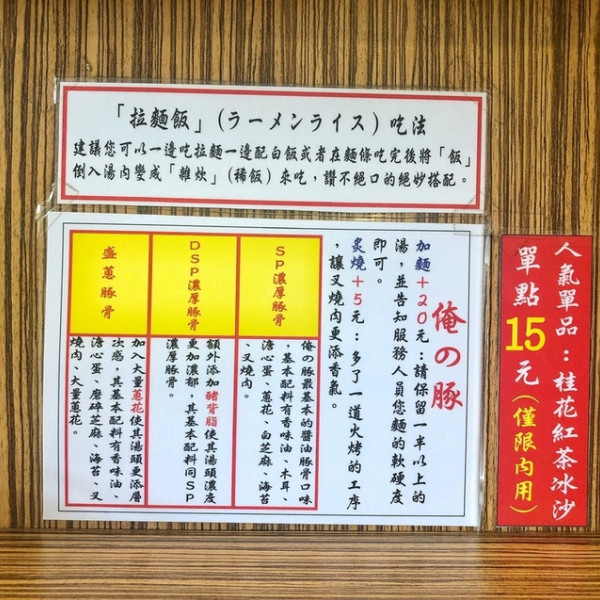 「拉麵飯」(ラーメンライス)吃法
建議您可以一邊吃拉麵一邊配白飯或者在麵條吃完後將「飯」
倒入湯內變成「雜炊」(稀飯)來吃，讚不絕口的絕妙搭配。
俺の豚
加麵+20元：請保留一半以上的
湯，並告知服務人員您麵的軟硬度
即可。
炙燒+5元：多了一道火烤的工序
，讓叉燒肉更添香氣。
SP濃厚豚骨
俺の豚最基本的醬油豚骨口味
，基本配料有香味油、木耳、
溏心蛋、蔥花、白芝麻、海苔
、叉燒肉。
DSP濃厚豚骨
額外添加豬背脂使其湯頭濃度
更加濃郁，其基本配料同SP
濃厚豚骨。
盛蔥豚骨
加入大量蔥花使其湯頭更添層
次感，其基本配料有香味油、
溏心蛋、磨碎芝麻、海苔、叉
燒肉、大量蔥花。
人氣單品：桂花紅茶冰沙
單點15元(僅限內用)